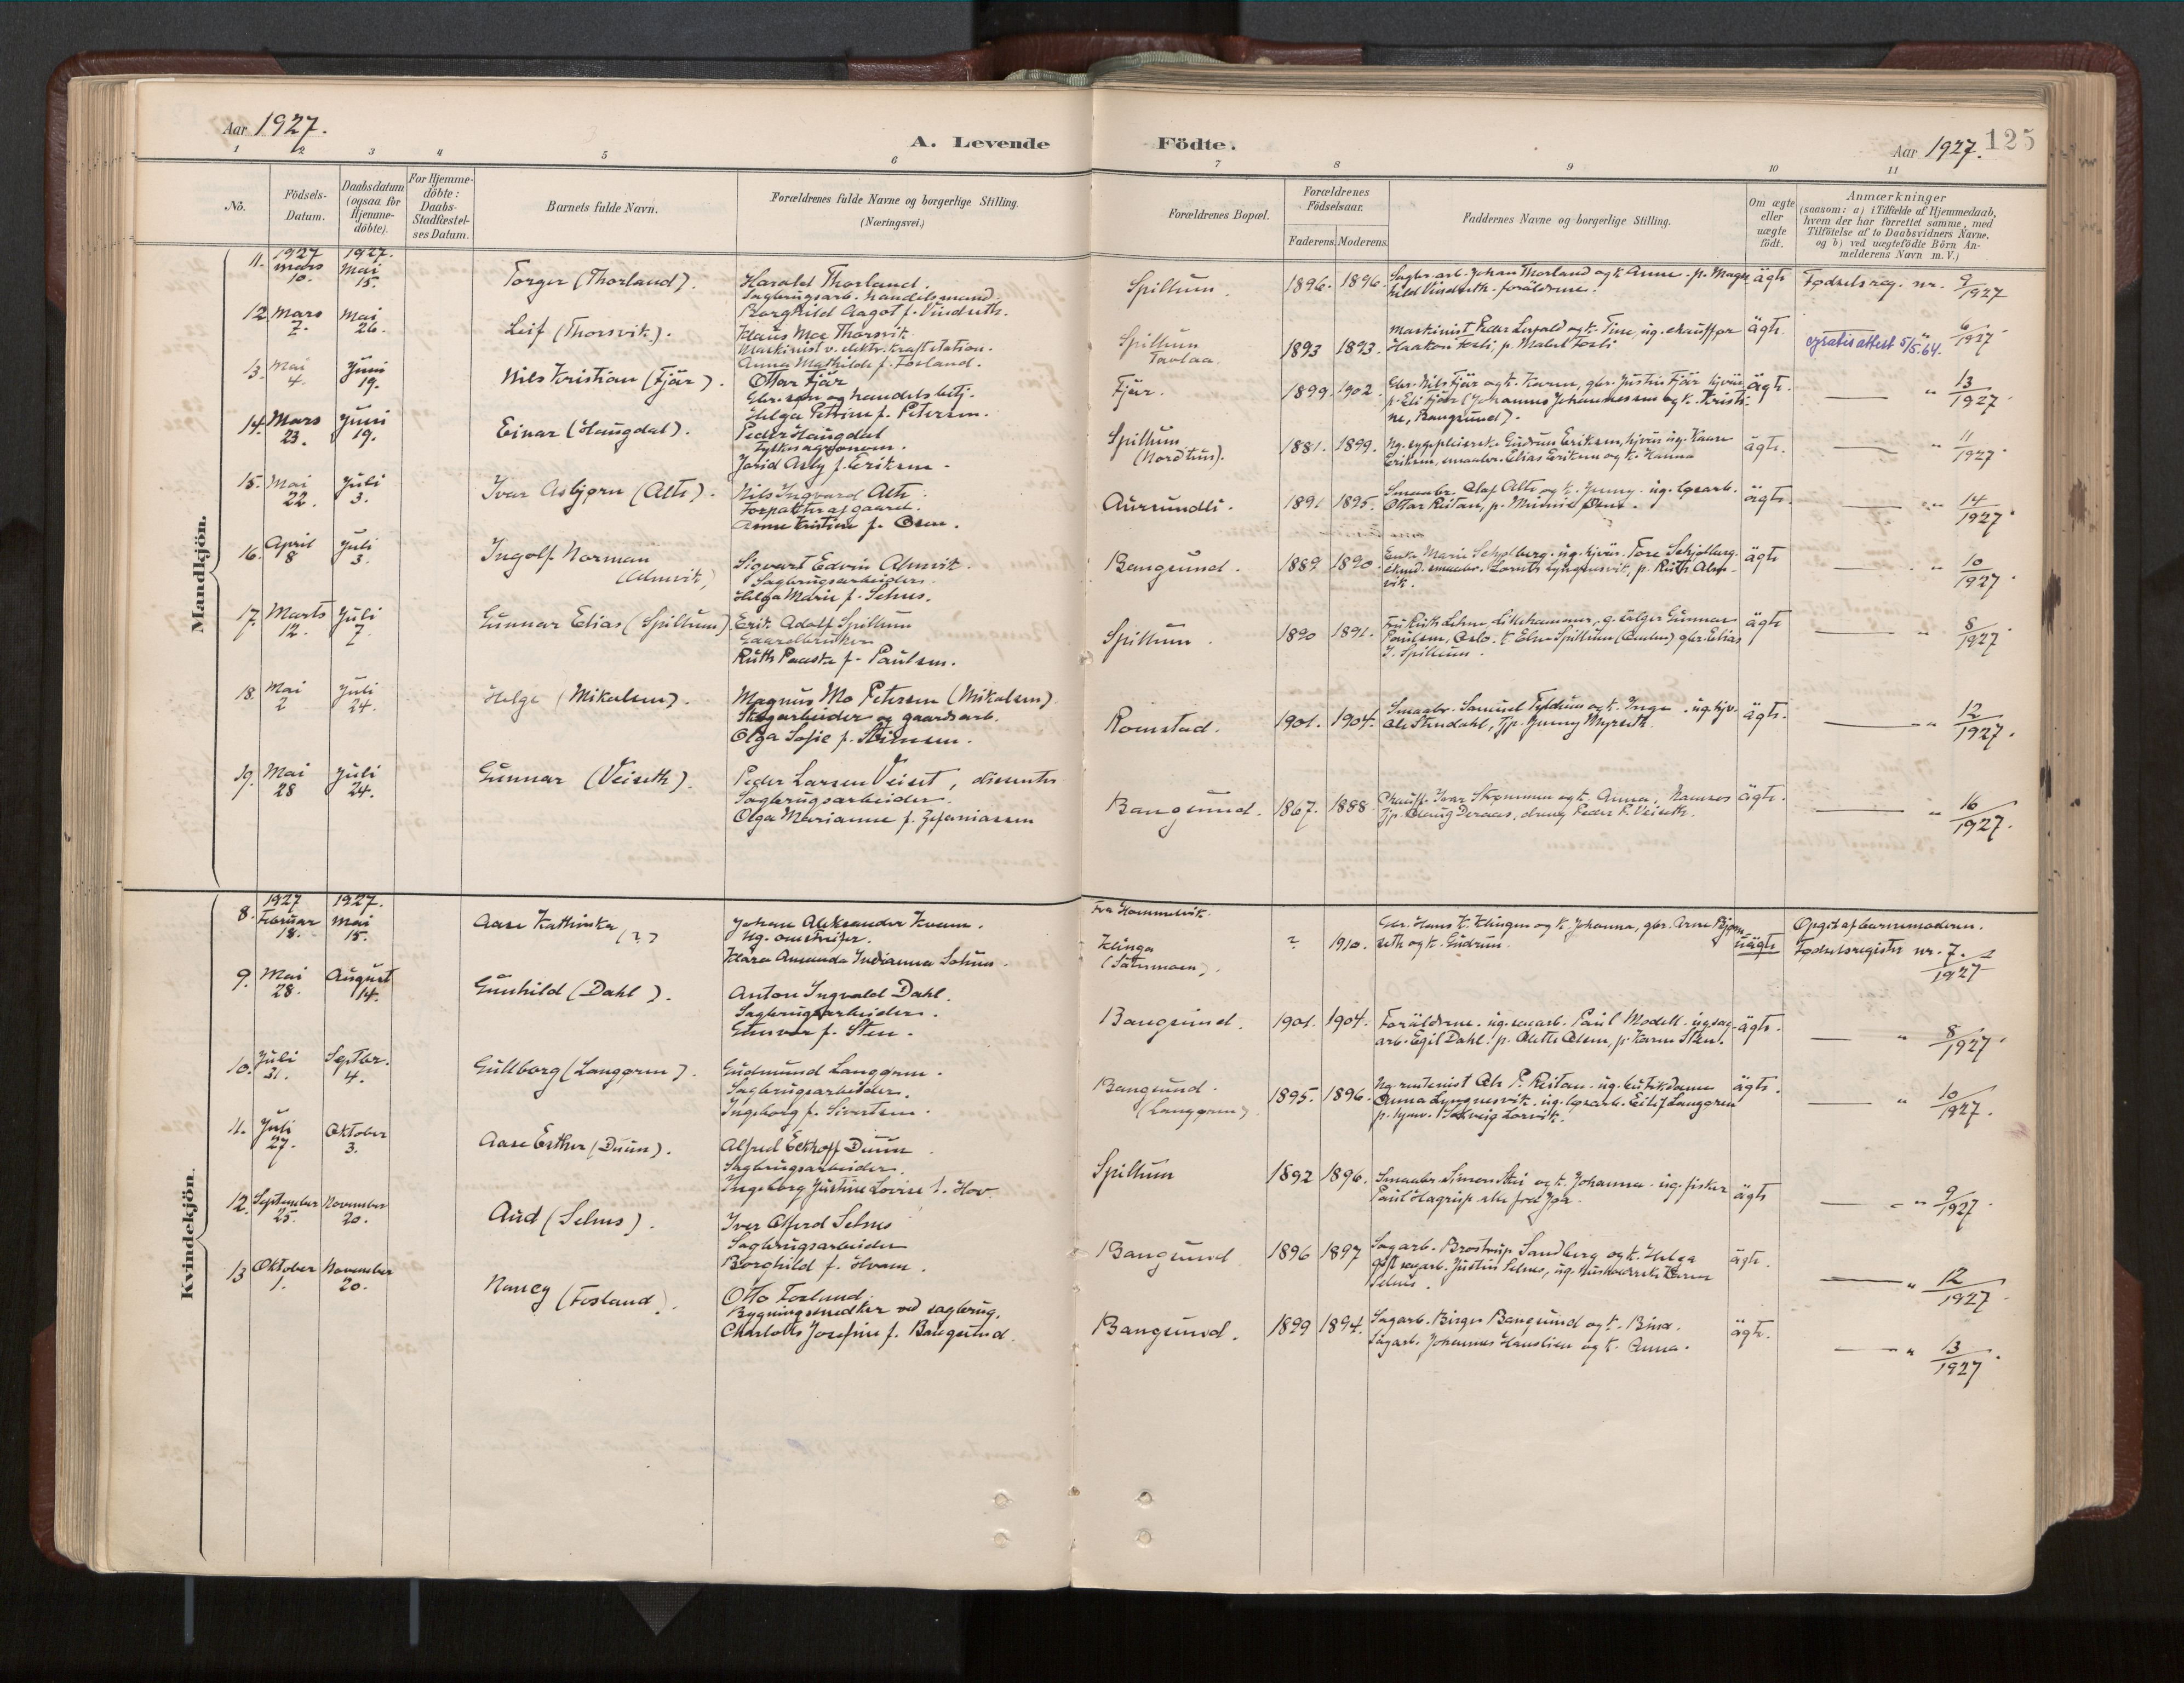 Aar 1927.
A. Levende Födte.
Aar 1927. 125
1 2 3 4 5 6 7 8 9 10 11
No.
Födsels-
Datum.
Daabsdatum
(ogsaa for
Hjemme-
döbte).
For Hjemme-
döbte:
Daabs-
Stadfæstel-
ses Datum.
Barnets fulde Navn.
Forældrenes fulde Navne og borgerlige Stilling.
(Næringsvei.)
Forældrenes Bopæl.
Forældrenes
Födselsaar.
Faderens. Moderens.
Faddernes Navne og borgerlige Stilling.
Om ægte
eller
uægte
födt.
Anmærkninger
(saasom: a) i Tilfælde af Hjemmedaab,
hvem der har forrettet samme, med
Tilföielse af to Daabsvidners Navne,
og b) ved uægtefödte Börn An-
melderens Navn m. V.)
Mandkjön.
11. 1927 Mars 10. 1927. Mai 15. Torger (Thorland).
Harald Thorland.
Sagbrugsarb. handelsmand.
Borghild Aagot f. Vindseth.
Spillum. 1896. 1896.
Sagbr.arb. Johan Thorland og k. Anne. p. Magn
hild Vindseth. foräldrene.
ägte Fødselsreg. nr. 9/1927
12. Mars 7. Mai 26. Leif (Thorsvik).
Klaus Moe Thorsvik
Maskinist v. elektr. kraftstation.
Anna Mathilde f. Fosland.
Spillum
Tavlaa. 1893 1893.
Maskinist Peder Lervold og k. Tine, ug. chauffør
Haakon Fosli, p. Mabel Fosli
ägte. gratis attest 5/5.64. " 6/1927
13. Mai 4. Juni 19. Nils Kristian (Fjär).
Ottar Fjär
Gbr. søn og handelsbetj.
Helga Petrine f. Petersen.
Fjär. 1899. 1902.
Gbr. Nils Fjär og k. Karen, gbr. Justin Fjär hjvär.
p. Eli Fjär (Johannes Johannessen og k. Kristi-
ne, Bangsund).
ägte. " 13/1927.
14. Mars 23. Juni 19. Einar (Haugdal).
Peder Haugdal
Fylkesagronom.
Jorid Asly f. Eriksen.
Spillum
(Nordtun). 1881. 1899.
Ug. sygepleierske Gudrun Eriksen, hjvär. ug. Kaare
Eriksen, smaabr. Elias Eriksen og k. Hanna
ägte. " 11/1927.
15. Mai 22. Juli 3. Ivar Asbjørn (Alte).
Nils Ingvard Alte.
Forpakter af gaard.
Anne Kristine f. Olsen.
Aursundli. 1891 1895.
Smaabr. Olaf Alte og k. Jenny. ug. lgsarb.
Ottar Reitan, p.
ägte. " 14/1927.
16. April 8 Juli 3. Ingolf Norman
(Almvik)
Sigvart Edvin Almvik.
Sagbrugsarbeider.
Helga Marie f. Selnes.
Bangsund. 1889 1890.
Enke Marie Schjølberg. ug. hjvär. Tore Schjølberg.
ekmd. smaabr. Lornts Lyngnesvik, p. Ruth Alm-
vik.
ägte " 10/1927.
17. Marts 12. Juli 7. Gunnar Elias (Spillum)
Erik Adolf Spillum
Gaardbruker
Ruth f. Paulsen.
Spillum. 1890 1891.
Fru Ruth Lehne, Lillehammer, g. sælger Gunnar
Paulsen, Oslo. k. Else Spillum gbr. Elias
J. Spillum.
ägte " 8/1927.
18. Mai 2 Juli 24. Helge (Mikalsen).
Magnus Mo Petersen (Mikalsen)
Skogarbeider og gaardsarb.
Olga Sofie f. Simensen.
Romstad. 1901. 1904.
Smaabr. Samuel Fyldum og k. Inga. ug. hjv.
Ole Stendahl, Tjp. Jenny Myrseth.
ägte. " 12/1927.
19. Mai 28 Juli 24. Gunnar (Veiseth).
Peder Larsen Veiset, dissenter
Sagbrugsarbeider.
Olga Marianne f. Zefaniassen
Bangsund. 1867. 1888.
Chauff. Ivar Strømmen og k. Anna, Namsos
Tjp. Deraas, dreng Peder P. Veiseth.
ägte. " 16/1927.
Kvindekjön.
8. 1927 Februar 18. 1927. Mai 15. Aase Kathinka (?)
Johan Aleksander Kvam.
Ug.
Klara Amanda Indianna Solum.
Fra Hommelvik.
Klinga
(Sätermoen). ? 1910.
Gbr. Hans K. Klingen og k. Johanna, gbr. Arne Bjøm
seth og k. Gudrun.
uägte Opgit af barnemoderen.
Fødselsregister nr. 7.
1927
9. Mai 28. August 14. Gunhild (Dahl).
Anton Ingvald Dahl.
Sagbrugsarbeider.
Gunvor f. Sten.
Bangsund. 1901. 1904.
Foräldrene. ug. sagarb. Paul Modell. ug. sag-
arb. Egil Dahl. p. Alette Olsen, p. Karen Sten.
ägte. " 8/1927.
10. Juli 31. Septbr. 4. Gullborg (Langøren).
Gudmund Langøren.
Sagbrugsarbeider.
Ingeborg f. Sivertsen.
Bangsund.
(Langøren) 1895. 1896.
Ug. rentenist Ole P. Reitan. ug. butikdame
Anna Lyngnesvik. ug. lgsarb. Eilif Langøren
p. Solveig Lorvik.
ägte. " 10/1927.
11. Juli 27. Oktober 3. Aase Esther (Duun).
Alfred Eckhoff Duun
Sagbrugsarbeider.
Ingeborg Justine Lovise f. Hov.
Spillum 1892 1896.
Smaabr. Simon og k. Johanna. ug. fisker
Paul
ägte " 9/1927.
12. September 25. November 20. Aud (Selnes).
Iver Alfred Selnes
Sagbrugsarbeider
Borghild f. Hvam.
Bangsund 1896 1897
Sagarb. Brostrup Sandberg og k. Helga
gift sagarb. Justin Selnes, ug. Karen
Selnes.
ägte. " 12/1927.
13 Oktober 1. November 20. Nancy (Fosland).
Otto Fosland.
Bygningssnedker ved sagbrug.
Charlotte Josefine f. Bangsund.
Bangsund. 1899 1894.
Sagarb. Birger Bangsund og k. Bina.
Sagarb. Johannes Hanslien og k. Anna.
ägte. " 13/1927.